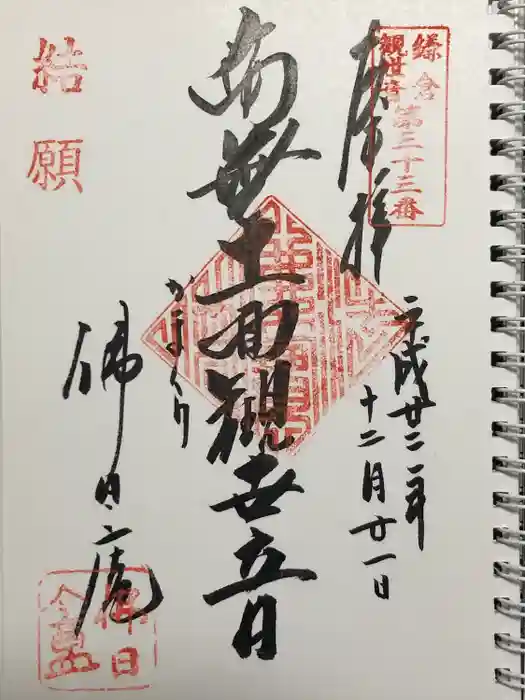 鎌倉
観世音
第三十三番
奉拝
平成廿二年
十二月廿一日
南無十一面観世音
かまくり
佛日庵
結願
佛日庵